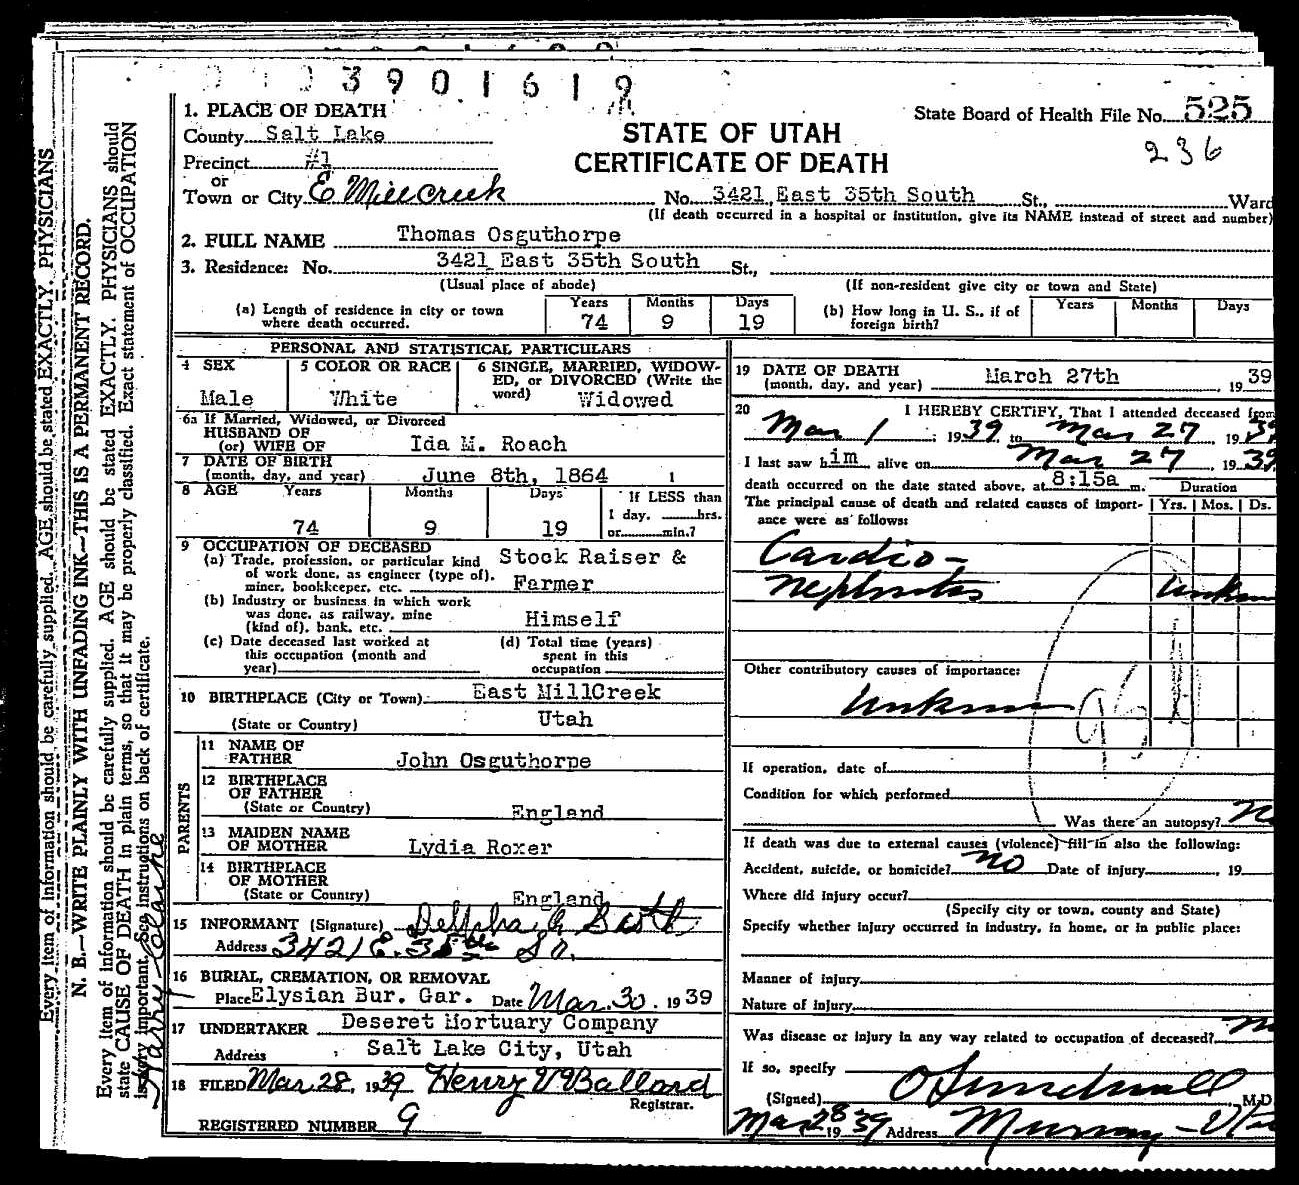 3901619
State Board of Health File No. 525
236
STATE OF UTAH
CERTIFICATE OF DEATH
1. PLACE OF DEATH
County Salt Lake
Precinct #1
or
Town or City E Millcreek No. 3421 East 35th South St., Ward
(If death occurred in a hospital or institution, give its NAME instead of street and number)
2. FULL NAME Thomas Osguthorpe
3. Residence: No. 3421 East 35th South St.,
(Usual place of abode) (If non-resident give city or town and State)
(a) Length of residence in city or town where death occurred. Years 74 Months 9 Days 19
(b) How long in U. S., if of foreign birth? Years Months Days
PERSONAL AND STATISTICAL PARTICULARS
4 SEX Male
5 COLOR OR RACE White
6 SINGLE, MARRIED, WIDOWED, or DIVORCED (Write the word) Widowed
6a If Married, Widowed, or Divorced
HUSBAND OF
(or) WIFE OF Ida M. Roach
7 DATE OF BIRTH
(month, day, and year) June 8th, 1864
8 AGE Years 74 Months 9 Days 19
If LESS than
1 day, hrs.
or min.?
9 OCCUPATION OF DECEASED
(a) Trade, profession, or particular kind of work done, as engineer (type of), miner, bookkeeper, etc. Stock Raiser & Farmer
(b) Industry or business in which work was done, as railway, mine (kind of), bank, etc. Himself
(c) Date deceased last worked at this occupation (month and year)
(d) Total time (years) spent in this occupation
10 BIRTHPLACE (City or Town) East MillCreek
(State or Country) Utah
PARENTS
11 NAME OF FATHER John Osguthorpe
12 BIRTHPLACE OF FATHER
(State or Country) England
13 MAIDEN NAME OF MOTHER Lydia Roxer
14 BIRTHPLACE OF MOTHER
(State or Country) England
15 INFORMANT (Signature)
Address 3421 E. 35th So.
16 BURIAL, CREMATION, OR REMOVAL
Place Elysian Bur. Gar. Date Mar. 30. 1939
17 UNDERTAKER Deseret Mortuary Company
Address Salt Lake City, Utah
18 FILED Mar 28, 1939 Henry V Ballard
Registrar.
REGISTERED NUMBER 9
19 DATE OF DEATH
(month, day, and year) March 27th, 1939
20 I HEREBY CERTIFY, That I attended deceased from
Mar 1, 1939 to Mar 27 1939
I last saw him alive on Mar 27, 1939
death occurred on the date stated above, at 8:15a m.
Duration
Yrs. Mos. Ds.
The principal cause of death and related causes of importance were as follows:
Cardio-
nephritis
Other contributory causes of importance:
If operation, date of
Condition for which performed
Was there an autopsy? No
If death was due to external causes (violence) fill in also the following:
Accident, suicide, or homicide? no Date of injury , 19
Where did injury occur?
(Specify city or town, county and State)
Specify whether injury occurred in industry, in home, or in public place:
Manner of injury
Nature of injury
Was disease or injury in any way related to occupation of deceased?
If so, specify
(Signed) M.D.
Mar 28 1939 Address Murray
Every item of information should be carefully supplied. AGE should be stated EXACTLY. PHYSICIANS
N. B.—WRITE PLAINLY WITH UNFADING INK—THIS IS A PERMANENT RECORD.
Every item of information should be carefully supplied. AGE should be stated EXACTLY. PHYSICIANS should
state CAUSE OF DEATH in plain terms, so that it may be properly classified. Exact statement of OCCUPATION
is very important. See instructions on back of certificate.